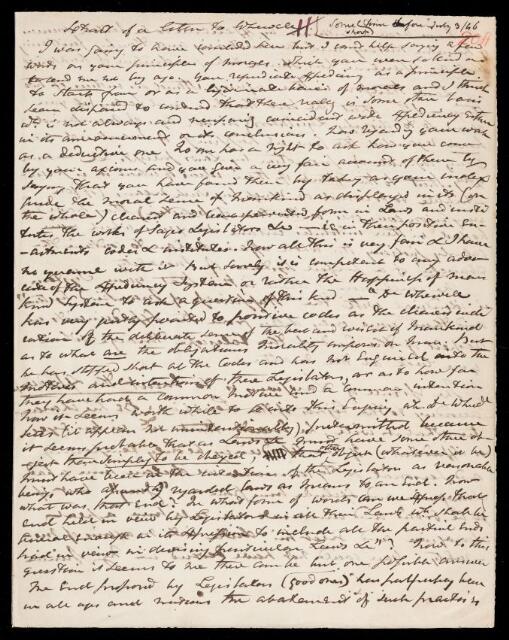 Extract of a letter to Whewell Some time before July 3/46
I was going to have ended here but I can't help saying a few
words on your principles of morals which you were so kind as
to send me not long ago. You repudiate expediency as a principle
to start from or as a legitimate basis of morals and I think
seem disposed to contend that there really is some other basis
wh. is not always and necessarily coincident with expediency either
in its announcement or its conclusions. Now regarding your work
as a deductive one no man has a right to ask how you come
by your axioms and you give a very fair account of them by
saying that you have found them by taking as your index
the moral sense of Mankind as displayed in its (on
the whole) clearest and least perverted form in Laws and insti-
tutes, the works of Sage Legislators &c — in their positive En-
actments codes & institutes. Now all this is very fair & I have
no quarrel with it. But surely it is competent to any advo-
cate of the Expediency System or rather the Happiness of man
kind System to ask a question of this kind — "Dr Whewell
has very justly pointed to positive codes as the clearest indi-
cation of the deliberate sense of the best and wisest of Mankind
as to what are the obligations Morality imposes on Man. But
he has stopped short at the Codes and has not Enquired into the
motives and intention of these Legislators, or as to how far
they have had a common motive and a common intention
Now it seems worth while to go into this Enquiry wh. Dr Whewell
seems (it appears not) to have omitted because
it seems probable that as Laws &c must have some other ob-
ject than simply to be obeyed that object (whatever it be)
must have been in the intention of the Legislators as reasonable
beings who regarded laws as means to an End. Now
what was that End? In what form of words can we express that
End held in view by Legislators in all their Laws wh. shall be
general enough in its expression to include all the partial ends
had in view in devising particular Laws &c". Now to this
question it seems to me there can be but one possible answer
The End proposed by Legislators (good ones) has partly been
in all ages and nations the abatement of such practices